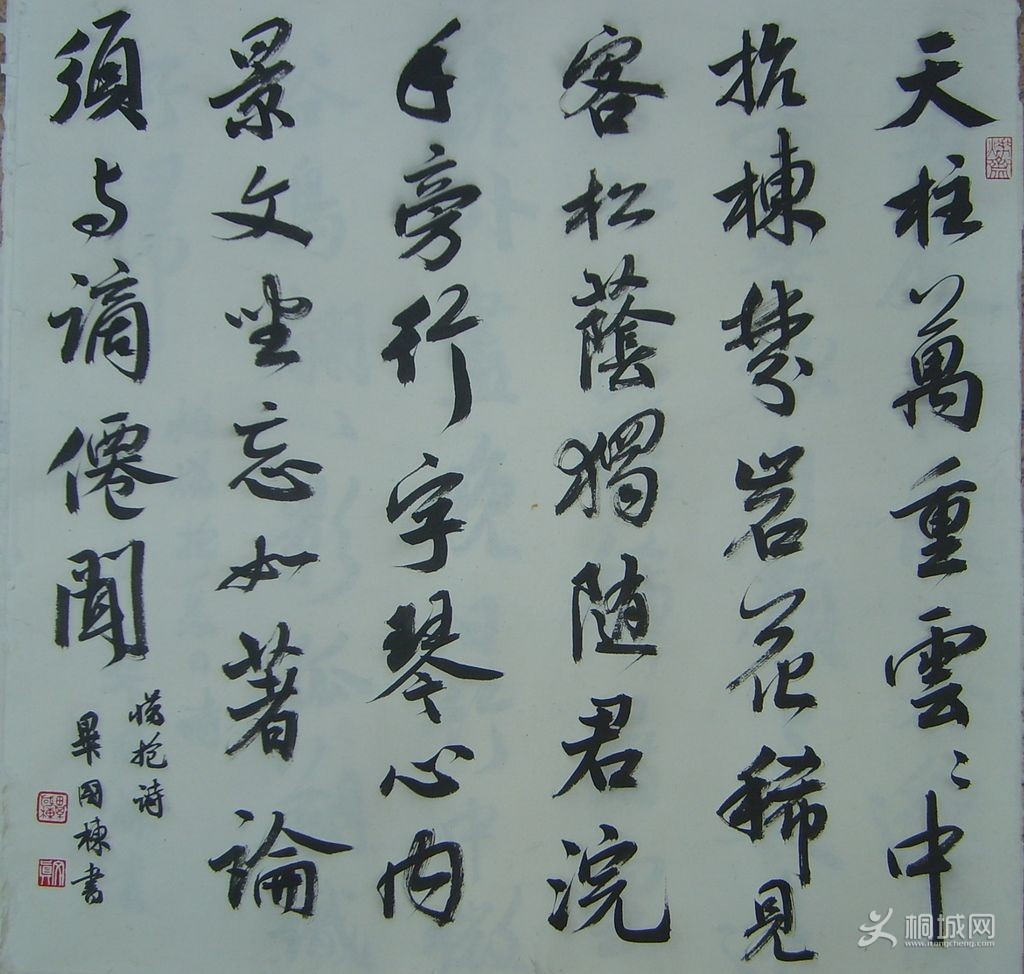 天柱萬重雲〻中
抗棟棼岩花稀見
客松蔭獨随君浣
手旁行字琴心内
景文坐忘如著論
須与謫僊聞
惜抱詩
畢国棟書
桐城网
www.itongcheng.com